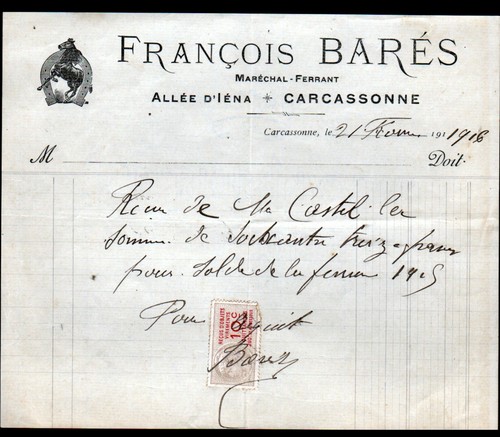 FRANÇOIS BARÉS
MARÉCHAL-FERRANT
ALLÉE D'IÉNA CARCASSONNE
Carcassonne, le 21 191 1916
M Doit
Reçu de Mr Castel la
somme de soixante treize francs
pour solde de la 1915
Pour acquit
Barés